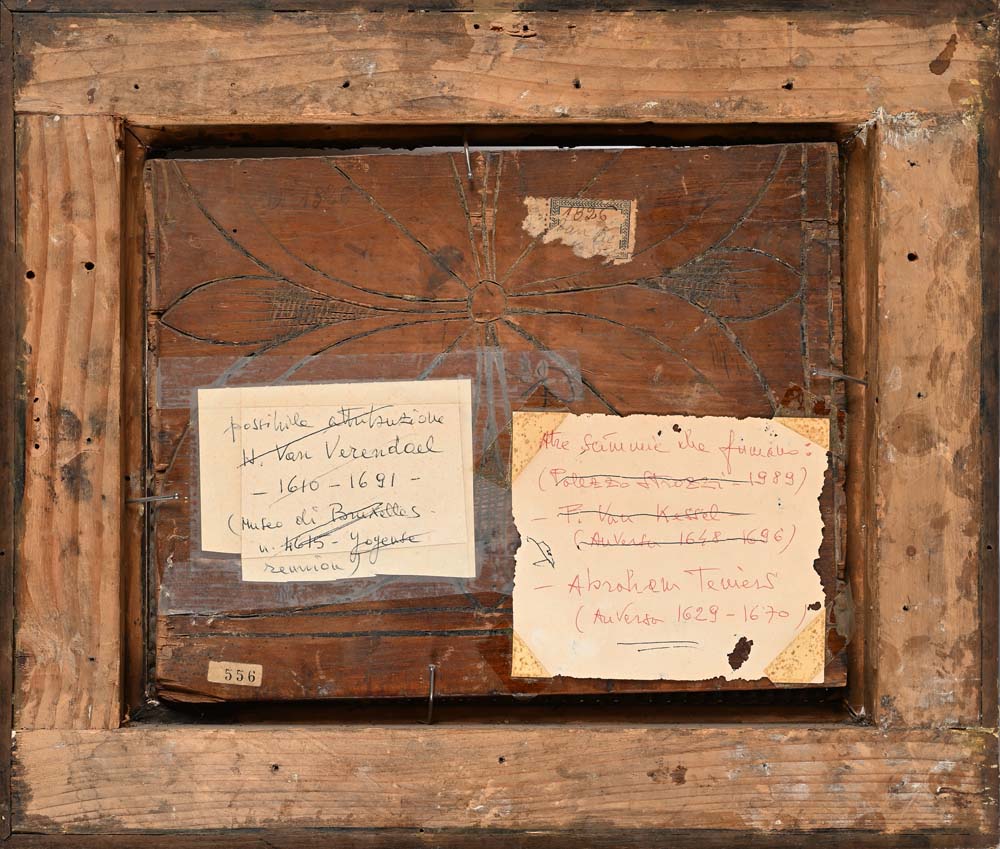 1826
possibile attribuzione
N. Van Verendael
- 1610 - 1691 -
(Museo di Bruxelles
n. 4615 - Yogense
reunion)
tre scimmie che fumano:
(Palazzo Strozzi 1989)
- F. Van Kessel
(Anversa 1648 1696)
- Abraham Teniers
(Anversa 1629 - 1670)
556